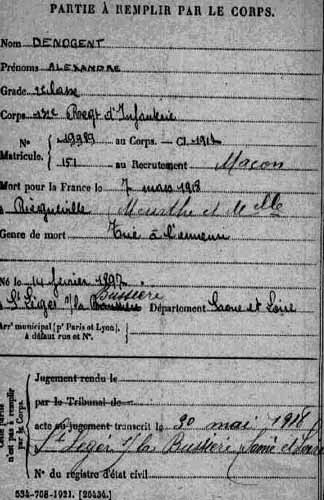 PARTIE À REMPLIR PAR LE CORPS.
Nom DENOGENT
Prénoms ALEXANDRE
Grade 2e classe
Corps Regt d'Infanterie
N° Matricule. { 19989 au Corps. — Cl. 1917
151 au Recrutement Macon
Mort pour la France le 7 mars 1918
à Meurthe et Mlle
Genre de mort Tué à l'ennemi
Né le 14 février 1897
à St Léger s/ la Bussière Département Saone et Loire
Arrt municipal (pr Paris et Lyon), à défaut rue et N°.
Cette partie n'est pas à remplir par le Corps.
Jugement rendu le
par le Tribunal de
acte ou jugement transcrit le 30 mai 1918
à St Leger s/ la Bussière Saône et Loire
N° du registre d'état civil
534-708-1921. [26434.]